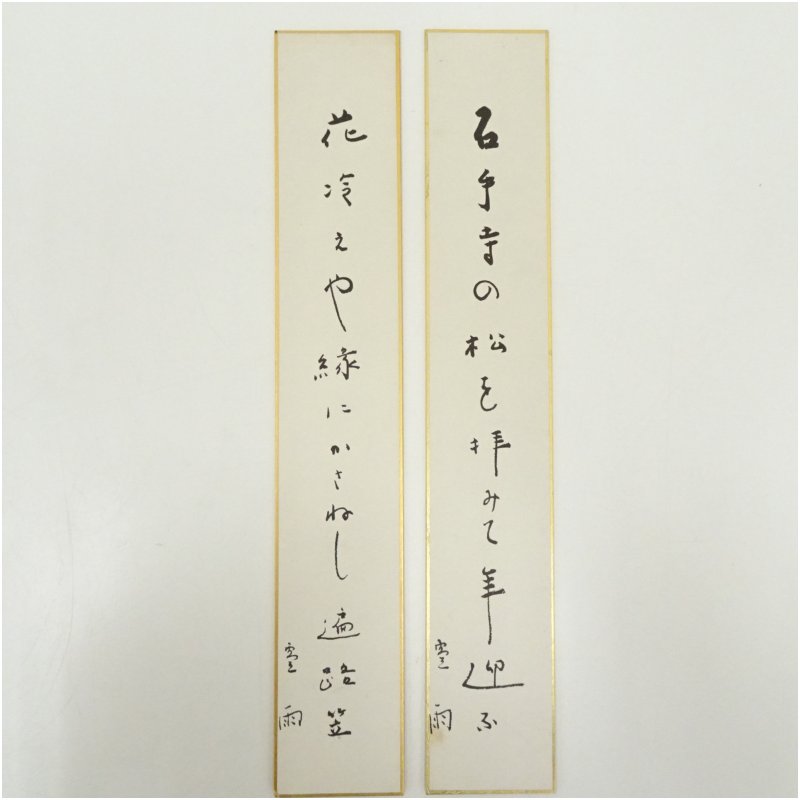 石手寺の松を拝みて年迎ふ
雨
花冷えや縁にかさねし遍路笠
雨